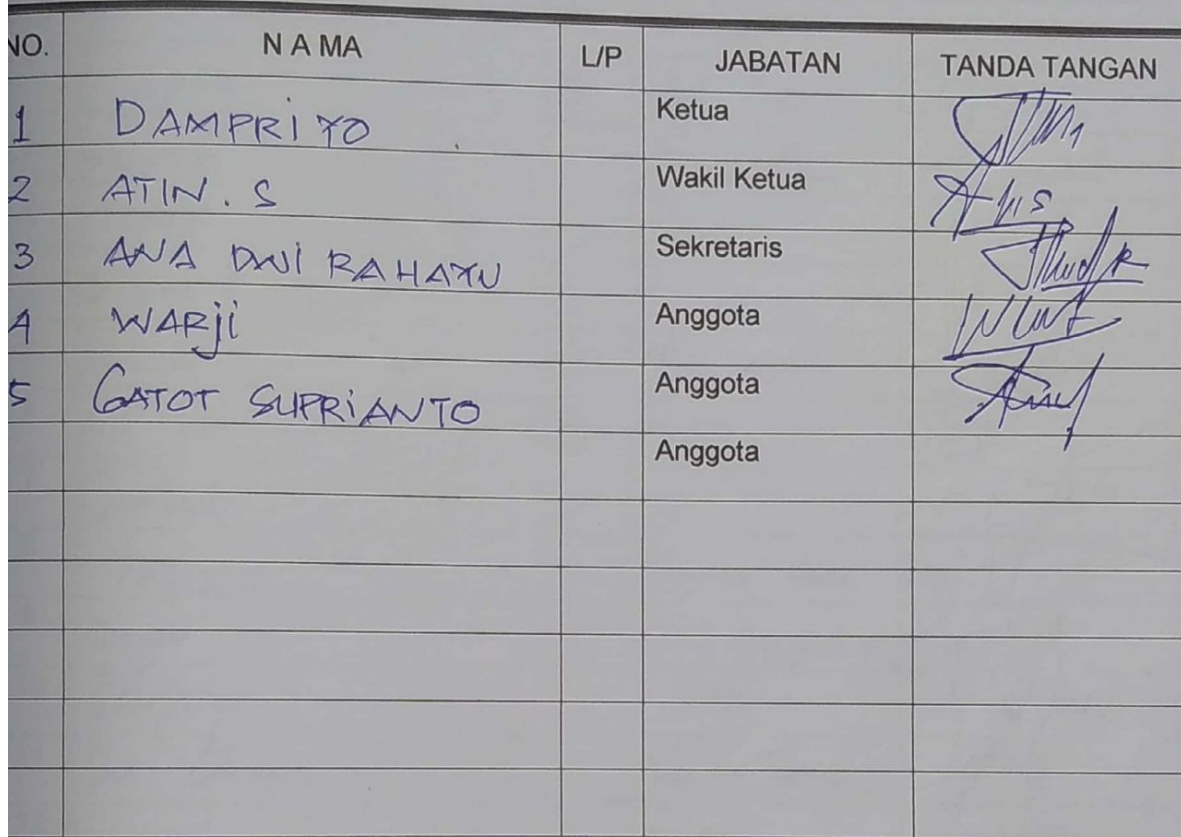 NO. N A MA L/P JABATAN TANDA TANGAN
1 DAMPRIYO Ketua
2 ATIN . S Wakil Ketua
3 ANA DWI RAHAYU Sekretaris
4 WARji Anggota
5 GATOT SUPRIANTO Anggota
Anggota